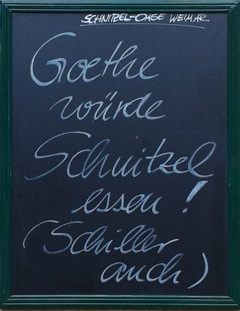 SCHNITZEL-OASE WEIMAR
Goethe
würde
Schnitzel
essen!
(Schiller
auch)